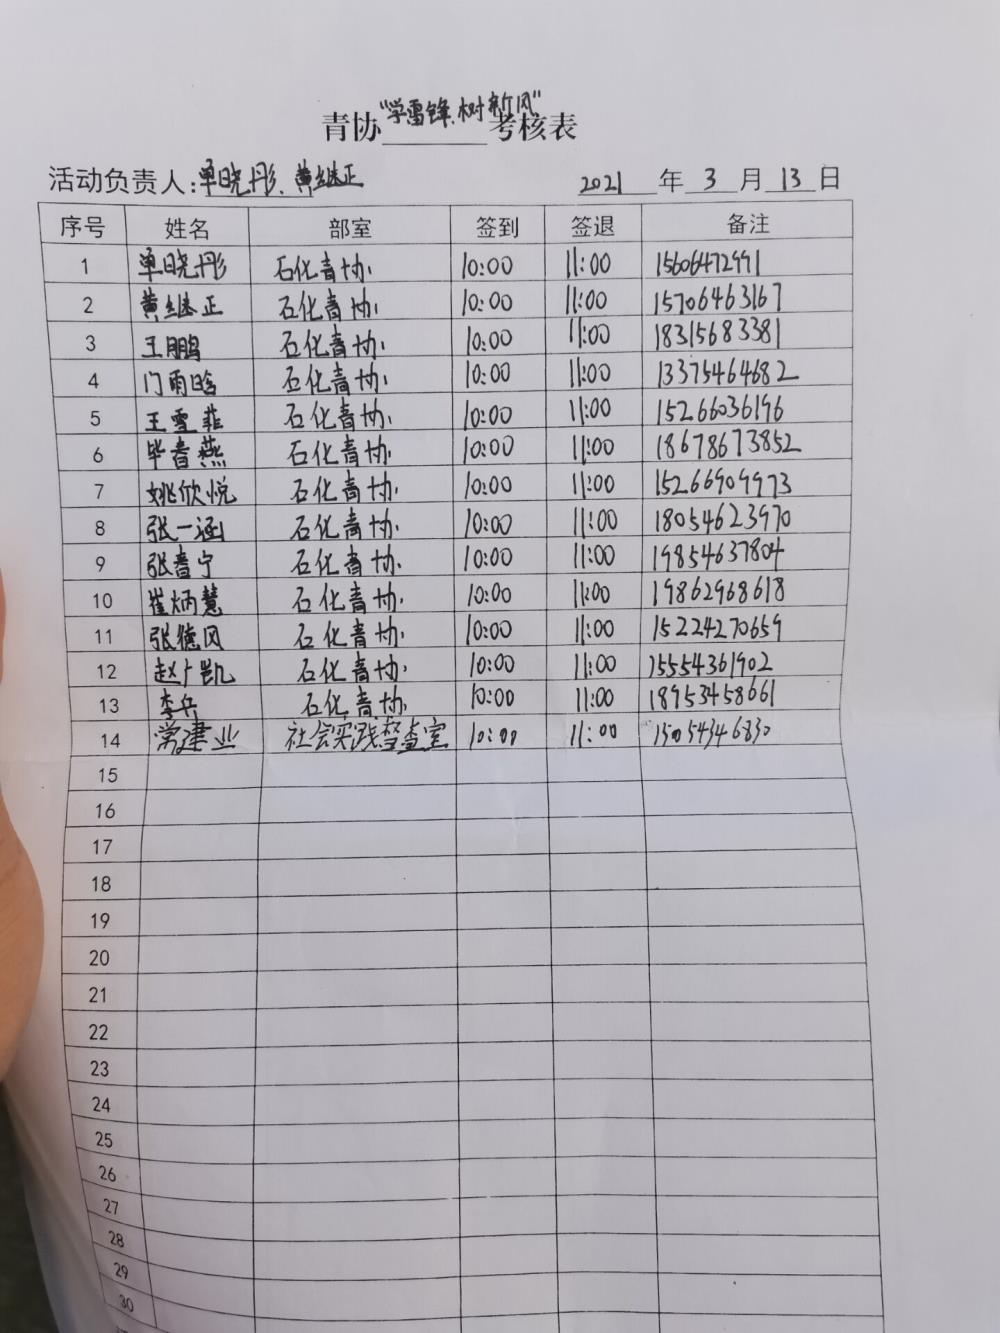 "学雷锋、树新风"
青协________考核表
活动负责人:单晓彤、黄继正 2021 年 3 月 13 日
序号 姓名 部室 签到 签退 备注
1 单晓彤 石化青协 10:00 11:00 15606472991
2 黄继正 石化青协 10:00 11:00 15706463167
3 王鹏 石化青协 10:00 11:00 18315683381
4 门雨晗 石化青协 10:00 11:00 13375464682
5 王雪菲 石化青协 10:00 11:00 15266036196
6 毕春燕 石化青协 10:00 11:00 18678673852
7 姚欣悦 石化青协 10:00 11:00 15266909973
8 张一涵 石化青协 10:00 11:00 18054623970
9 张春宁 石化青协 10:00 11:00 19854637804
10 崔炳慧 石化青协 10:00 11:00 19862968618
11 张德风 石化青协 10:00 11:00 15224270659
12 赵广凯 石化青协 10:00 11:00 15554361902
13 李兵 石化青协 10:00 11:00 18953458661
14 常建业 社会实践督查室 10:00 11:00 15054346830
15
16
17
18
19
20
21
22
23
24
25
26
27
28
29
30